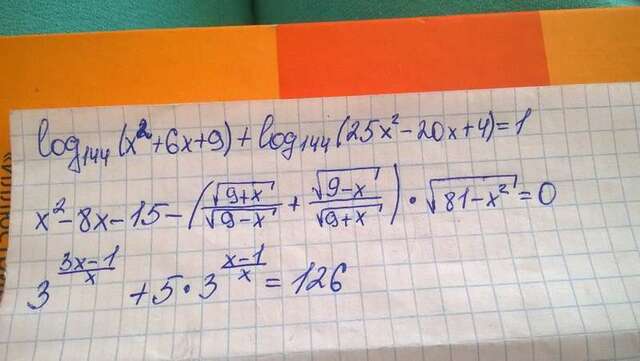 log₁₄₄(x²+6x+9)+log₁₄₄(25x²-20x+4)=1
x²-8x-15-(√(9+x)/√(9-x)+√(9-x)/√(9+x))·√(81-x²)=0
3^((3x-1)/x)+5·3^((x-1)/x)=126